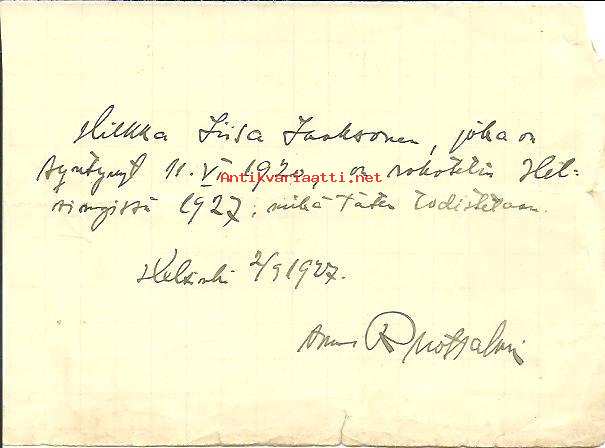 Hilkka Liisa Jaaksonen, joka on
syntynyt 11.V 1920, on rokotettu Hel-
singissä 1927, mikä täten todistetaan.
Antikvariaatti.net
Helsinki 2/9 1927.